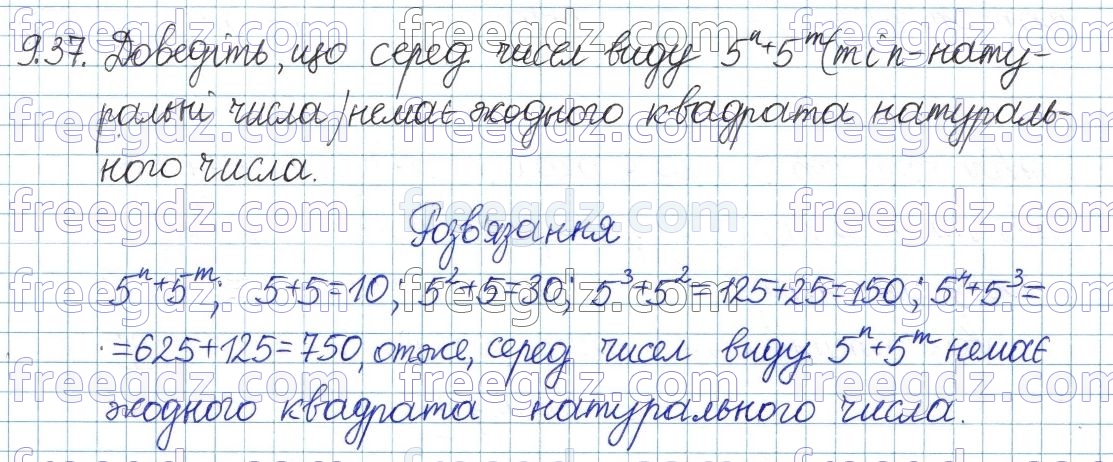 9.37. Доведіть, що серед чисел виду 5ⁿ+5ᵐ(m і n-нату-
ральні числа/немає жодного квадрата натураль-
ного числа.
Розв'язання
5ⁿ+5ᵐ; 5+5=10; 5²+5=30; 5³+5²=125+25=150; 5⁴+5³=
=625+125=750, отже, серед чисел виду 5ⁿ+5ᵐ немає
жодного квадрата натурального числа.
freegdz.com